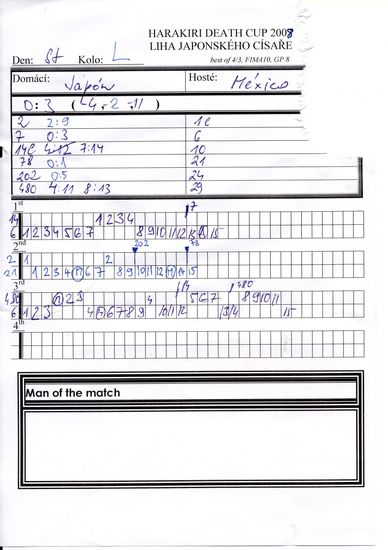 HARAKIRI DEATH CUP 2008
LIHA JAPONSKÉHO CÍSAŘE
Den: St Kolo: L
best of 4/3, FIMA10, GP 8
Domácí: Japón
Hosté: México
0:3 (-4, -2, -11)
2 2:9 1C
7 0:3 6
14C 4:12 7:14 10
78 0:1 21
202 0:5 24
480 4:11 8:13 29
1st
7
14 1 2 3 4
6 1 2 3 4 5 6 7 8 9 10 11 12 13 15
2nd
202 78
2 1 2
21 1 2 3 4 5 6 7 8 9 10 11 12 13 14 15
3rd
14 480
480 2 3 4 5 6 7 8 9 10 11
6 1 2 3 4 5 6 7 8 9 10 11 12 13 14 15
4th
Man of the match